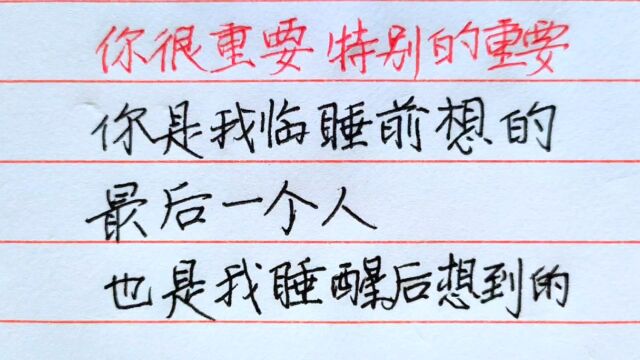 你很重要特别的重要
你是我临睡前想的
最后一个人
也是我睡醒后想到的